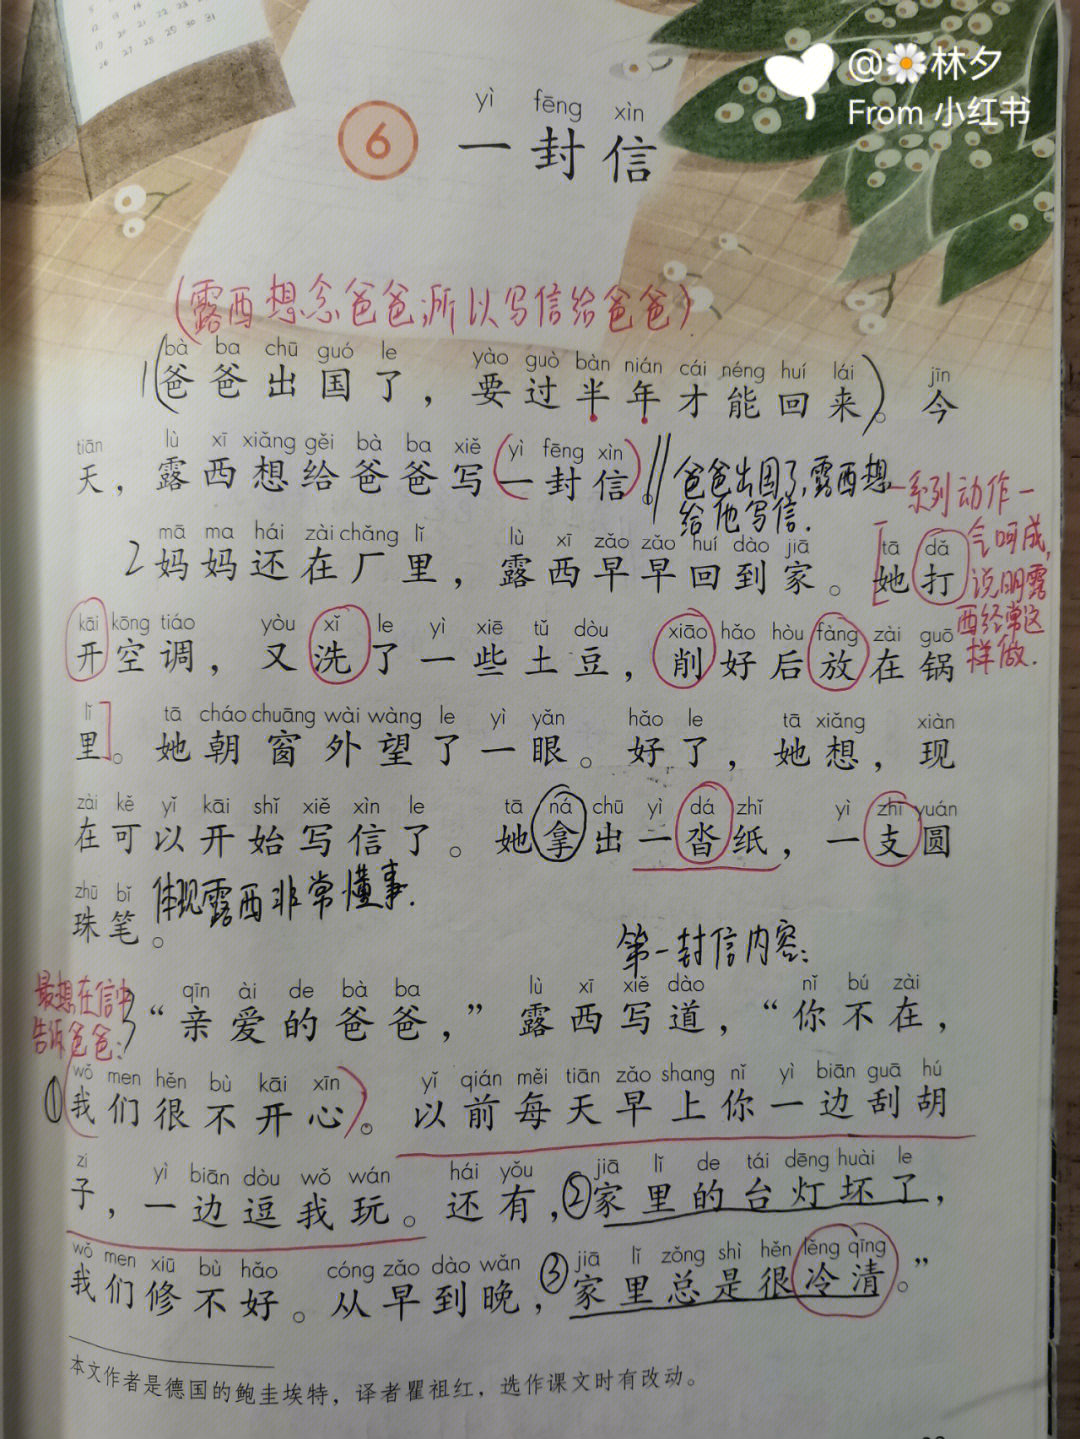 @🌼林夕
From 小红书
yì fēng xìn
6 一封信
(露西想念爸爸,所以写信给爸爸)
bà ba chū guó le yào guò bàn nián cái néng huí lái jīn
1(爸爸出国了，要过半年才能回来)。今
tiān lù xī xiǎng gěi bà ba xiě yì fēng xìn
天，露西想给爸爸写(一封信)。//
爸爸出国了,露西想
给他写信.
一系列动作一
气呵成,
说明露
西经常这
样做.
mā ma hái zài chǎng lǐ lù xī zǎo zǎo huí dào jiā tā dǎ
2妈妈还在厂里，露西早早回到家。[她打
kāi kōng tiáo yòu xǐ le yì xiē tǔ dòu xiāo hǎo hòu fàng zài guō
开空调，又洗了一些土豆，削好后放在锅
lǐ tā cháo chuāng wài wàng le yì yǎn hǎo le tā xiǎng xiàn
里]。她朝窗外望了一眼。好了，她想，现
zài kě yǐ kāi shǐ xiě xìn le tā ná chū yì dá zhǐ yì zhī yuán
在可以开始写信了。她拿出一沓纸，一支圆
zhū bǐ
珠笔。
体现露西非常懂事.
第一封信内容:
最想在信中
告诉爸爸:
qīn ài de bà ba lù xī xiě dào nǐ bú zài
3“亲爱的爸爸，”露西写道，“你不在，
wǒ men hěn bù kāi xīn yǐ qián měi tiān zǎo shang nǐ yì biān guā hú
①(我们很不开心)。以前每天早上你一边刮胡
zi yì biān dòu wǒ wán hái yǒu jiā lǐ de tái dēng huài le
子，一边逗我玩。还有，②家里的台灯坏了，
wǒ men xiū bù hǎo cóng zǎo dào wǎn jiā lǐ zǒng shì hěn lěng qīng
我们修不好。从早到晚，③家里总是很冷清。”
本文作者是德国的鲍圭埃特，译者瞿祖红，选作课文时有改动。